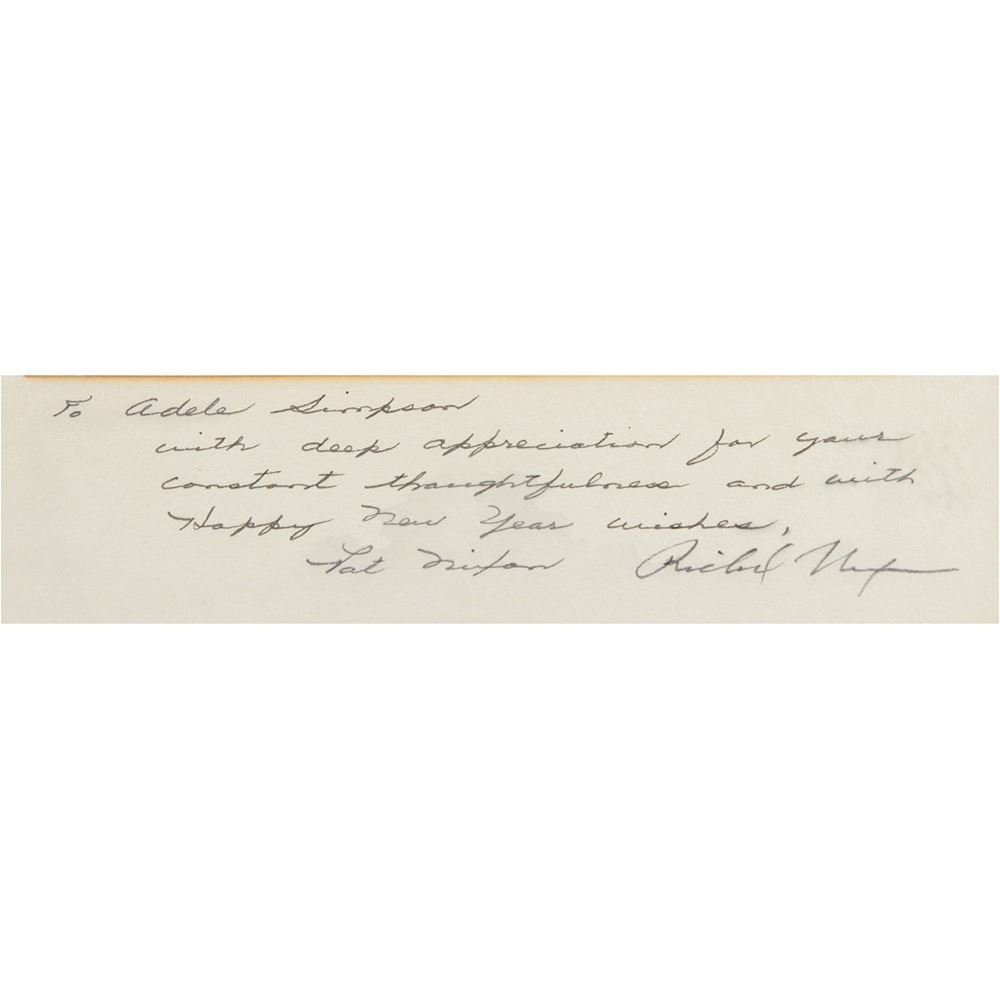 To Adele Simpson
with deep appreciation for your
constant thoughtfulness and with
Happy New Year wishes,
Pat Nixon Richard Nixon